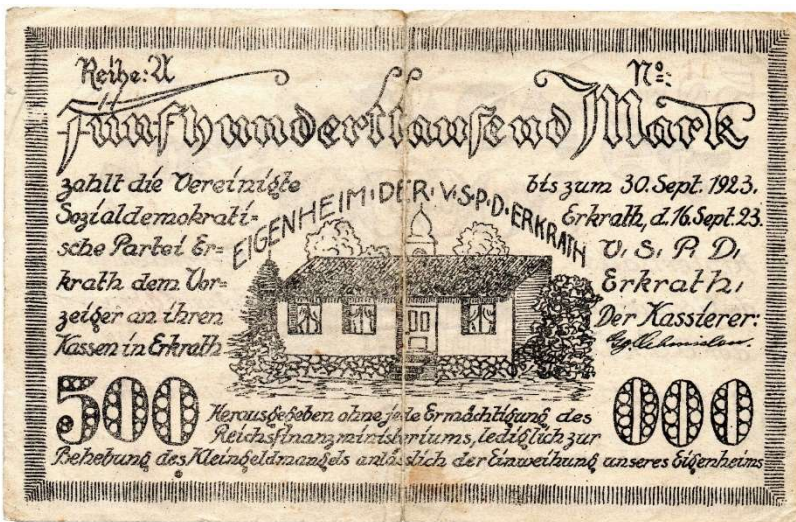 Reihe: A Nº:
Fünfhunderttausend Mark
zahlt die Vereinigte
Sozialdemokrati=
sche Partei Er=
krath dem Vor=
zeiger an ihren
Kassen in Erkrath
EIGENHEIM·DER·V.S.P.D.ERKRATH
bis zum 30. Sept. 1923.
Erkrath, d. 16. Sept. 23.
V. S. P. D.
Erkrath,
Der Kassierer:
500 000
Herausgegeben ohne jede Ermächtigung des
Reichsfinanzministeriums, lediglich zur
Behebung des Kleingeldmangels anlässlich der Einweihung unseres Eigenheims